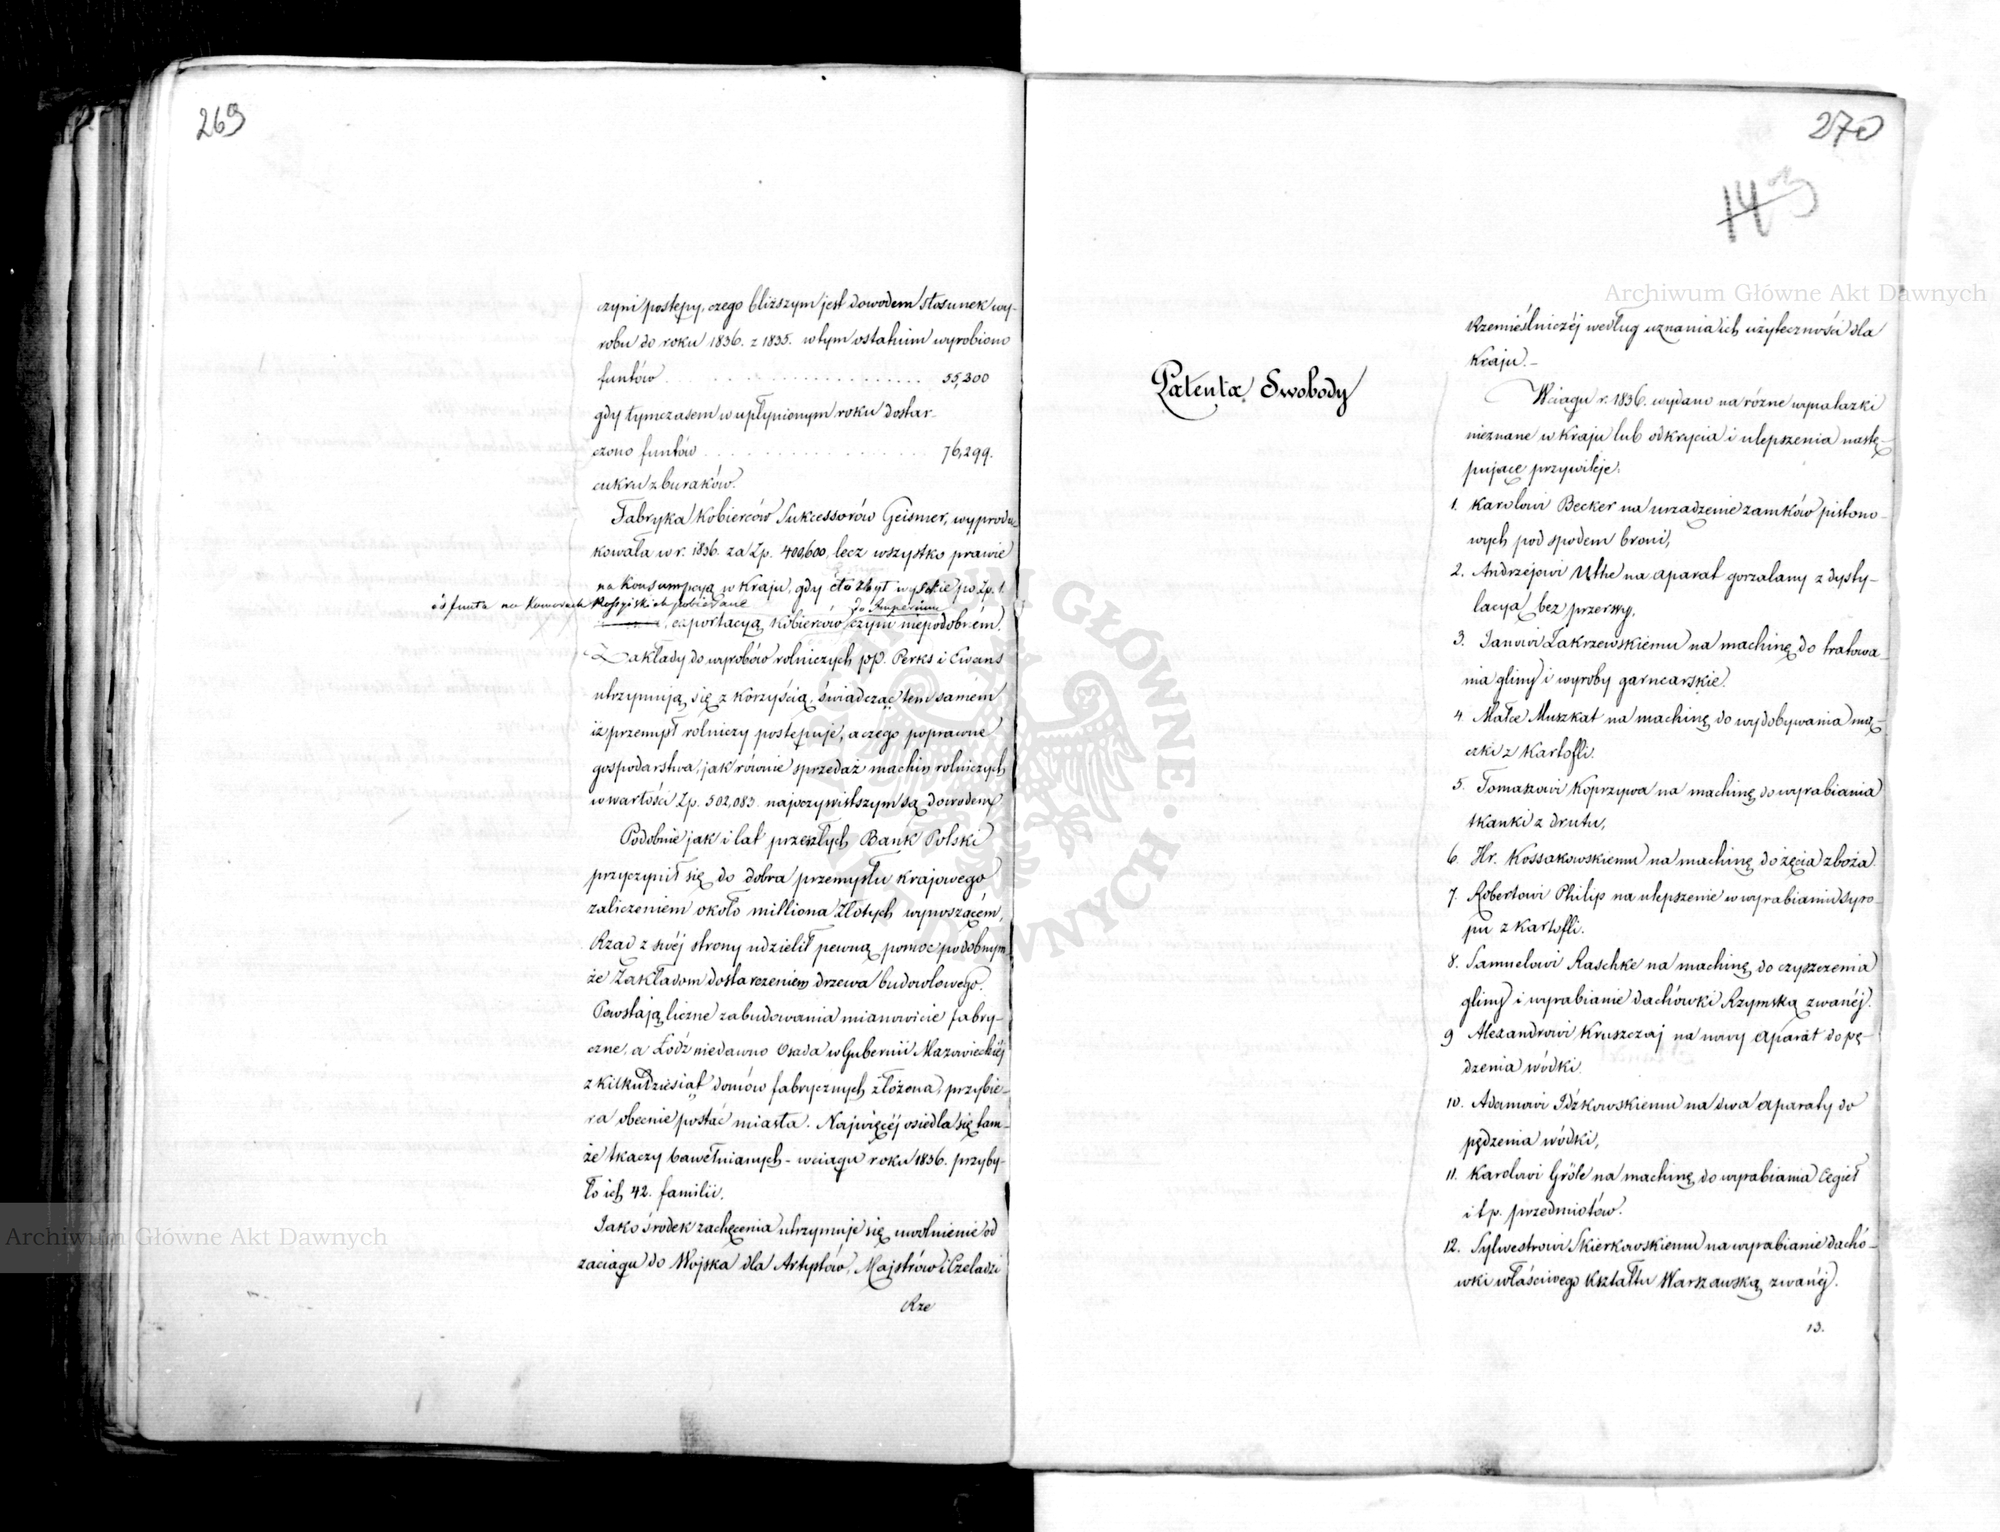 269
czyni postępy, czego bliższym jest dowodem stosunek wy-
robu do roku 1836. z 1835. w tym ostatnim wyrobiono
funtów . . . . . . . . . . . . . . . . . . . . 55,300
gdy tymczasem w upłynionym roku dostar-
czono funtów . . . . . . . . . . . . . . . . . 76,299.
cukru z buraków.
Fabryka Kobierców Sukcessorów Geismer, wyprodu-
kowała w r. 1836. za Zp. 400,600, lecz wszystko prawie
na Konsumpcyą w Kraju, gdy cło zbyt wysokie po Zp. 1.
od funta na Komorach Rossyiskich pobierane
do Imperium
exportacyą Kobierców czyni niepodobném.
Zakłady do wyrobów rolniczych pp. Perks i Ewans
utrzymują się z korzyścią, świadcząc tem samém
iż przemysł rolniczy postępuje, a czego poprawne
gospodarstwa, jak równie sprzedaż machin rolniczych
w wartości Zp. 502,083. najoczywistszym są dowodem,
Podobnie jak i lat przeszłych Bank Polski
przyczynił się do dobra przemysłu krajowego
zaliczeniem około milliona złotych wynoszącém,
Rząd z swéj strony udzielił pewną pomoc podobnym-
że Zakładom dostarczeniem drzewa budowlowego.
Powstają liczne zabudowania mianowicie fabry-
czne, a Łódź niedawno Osada w Gubernii Mazowieckiéj
z kilkudziesiąt domów fabrycznych złożona, przybie-
ra obecnie postać miasta. Najwięcéj osiedla się tam-
że tkaczy bawełnianych - w ciągu roku 1836. przyby-
ło ich 42. familii.
Jako środek zachęcenia utrzymuje się uwolnienie od
zaciągu do Wojska dla Artystów, Majstrów i Czeladzi
Rze
270
143
Patenta Swobody
Rzemieślniczéj według uznania ich użyteczności dla
Kraju. -
W ciągu r. 1836. wydano na różne wynalazki
nieznane w Kraju lub odkrycia i ulepszenia nastę-
pujące przywileje.
1. Karolowi Becker na urządzenie zamków pistono-
wych pod spodem broni,
2. Andrzejowi Uthe na aparat gorzalany z dysty-
lacyą bez przerwy.
3. Janowi Zakrzewskiemu na machinę do tratowa-
nia gliny i wyroby garncarskie.
4. Małce Muszkat na machinę do wydobywania mą-
czki z Kartofli.
5. Tomaszowi Koprzywa na machinę do wyrabiania
tkanki z drutu,
6. Hr. Kossakowskiemu na machinę do żęcia zboża
7. Robertowi Philip na ulepszenie w wyrabianiu syro-
pu z Kartofli.
8. Samuelowi Raschke na machinę do czyszczenia
gliny i wyrabianie dachówki Rzymską zwanéj.
9 Alexandrowi Kruszczaj na nowy aparat do pę-
dzenia wódki.
10. Adamowi Idźkowskiemu na dwa aparaty do
pędzenia wódki,
11. Karolowi Gröte na machinę do wyrabiania Cegieł
i t p. przedmiotów.
12. Sylwestrowi Skierkowskiemu na wyrabianie dachó-
wki właściwego kształtu Warszawską zwanéj.
13.
Archiwum Główne Akt Dawnych
Archiwum Główne Akt Dawnych
ARCHIWUM GŁÓWNE AKT DAWNYCH